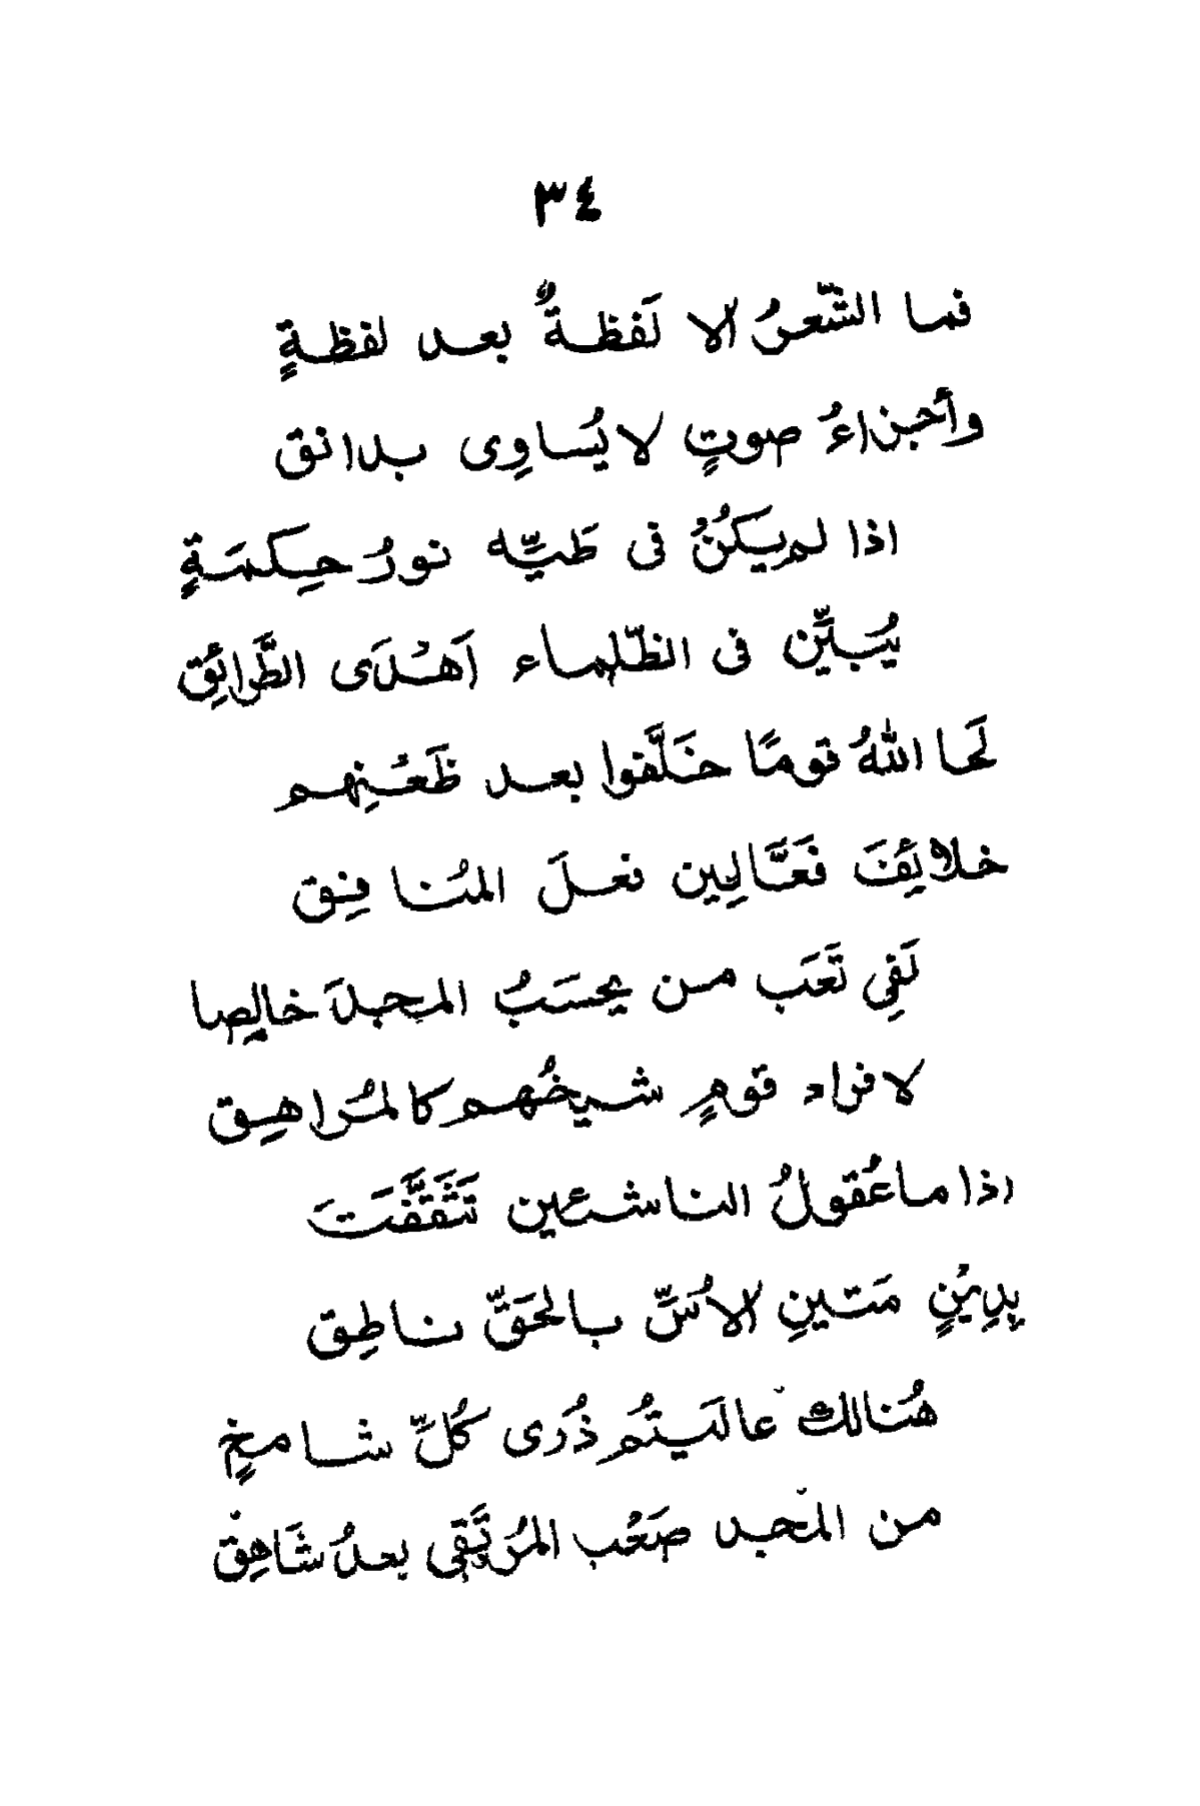 ٣٤
فما الشّعرُ الا لَفظةٌ بعد لفظةٍ
وأجزاءُ صوتٍ لا يُساوِى بدانق
اذا لم يكنُ فى طَيِّه نورُ حِكمَةٍ
يُبَيِّن فى الظّلماء اَهْدَى الطَّرائِق
لَحا اللهُ قومًا خَلَّفوا بعد ظَعْنِهم
خلائِفَ فَعَّالِين فعلَ المُنافِق
لَفِى تَعَب من يحسَبُ المجدَ خالِصا
لافراد قومٍ شيخُهم كالمُراهِق
اذا ما عُقولُ الناشئين تَثَقَّفَت
بِدِيْنٍ مَتينِ الاُسِّ بالحَقِّ ناطِق
هُنالك عاليتُم ذُرى كُلِّ شامخٍ
من المجد صَعْب المُرتَقِى بعدُ شَاهِق